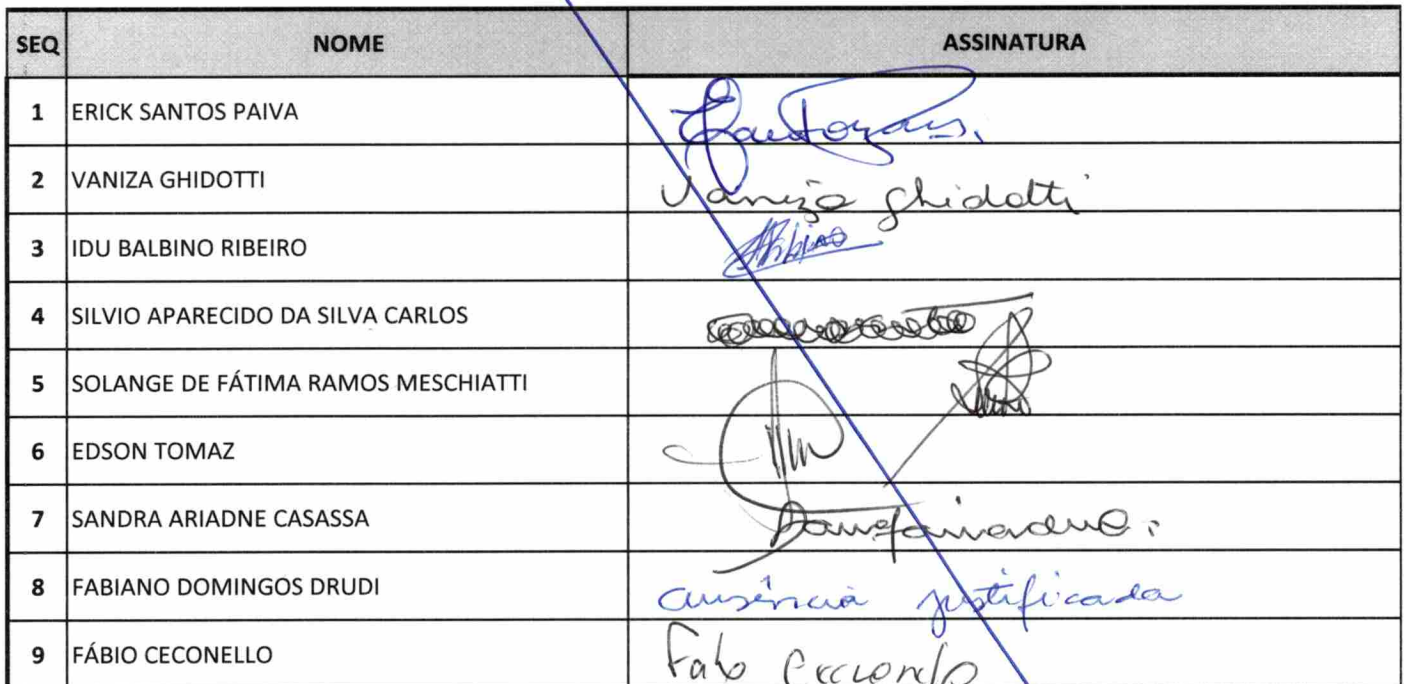 SEQ NOME ASSINATURA
1 ERICK SANTOS PAIVA
2 VANIZA GHIDOTTI Vaniza Ghidotti
3 IDU BALBINO RIBEIRO
4 SILVIO APARECIDO DA SILVA CARLOS
5 SOLANGE DE FÁTIMA RAMOS MESCHIATTI
6 EDSON TOMAZ
7 SANDRA ARIADNE CASASSA
8 FABIANO DOMINGOS DRUDI ausência justificada
9 FÁBIO CECONELLO